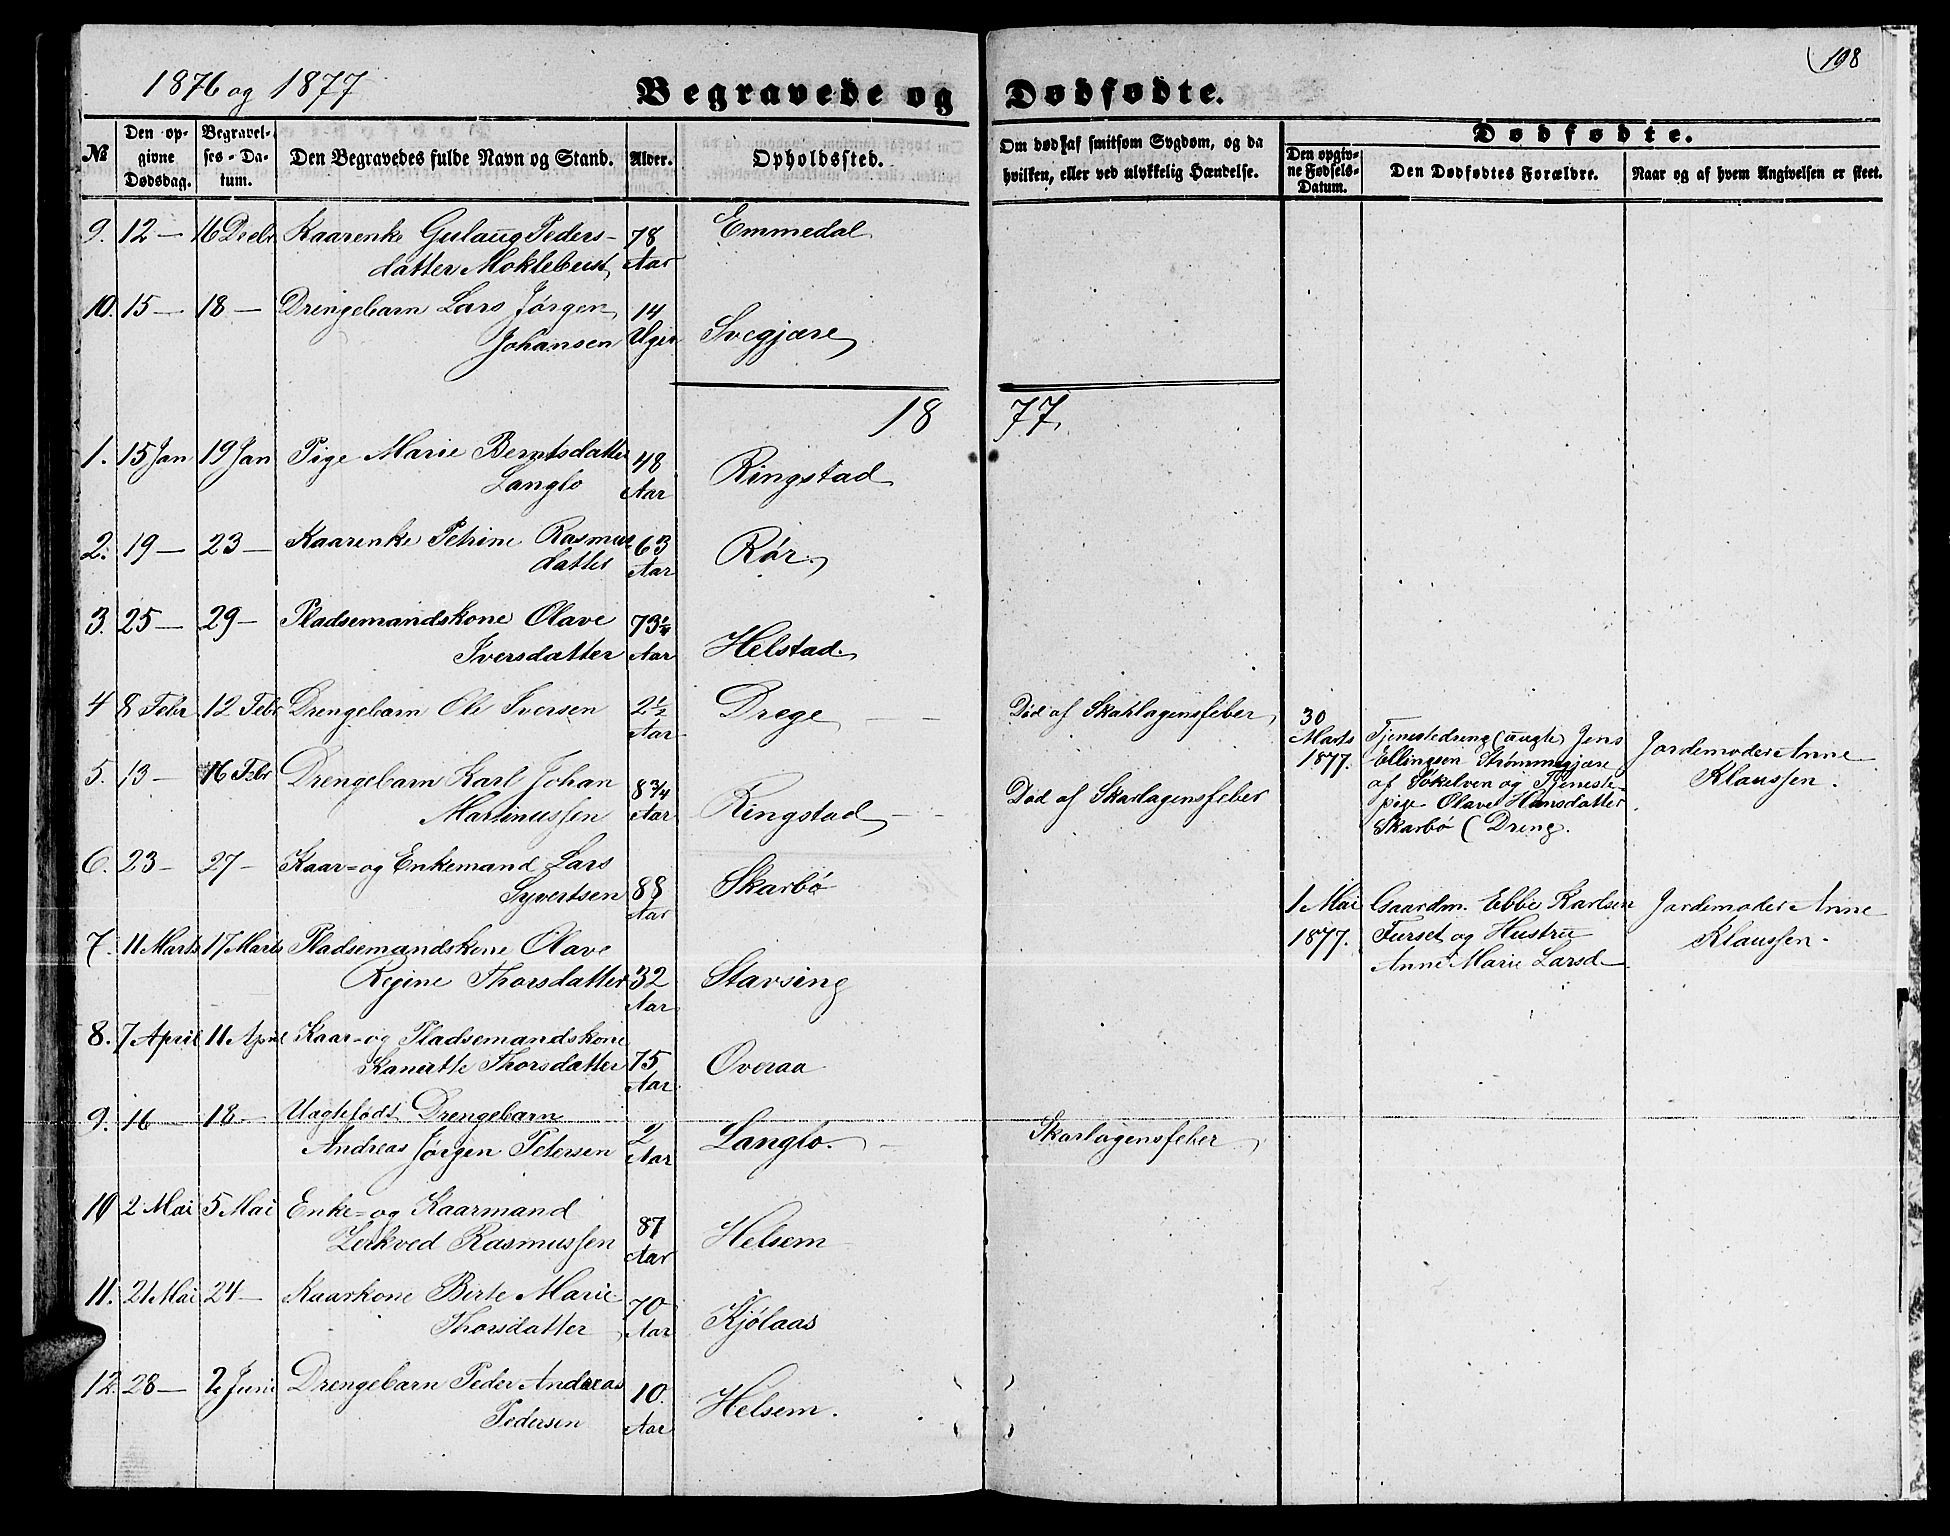 1876 og 1877
Begravede og Dødfødte.
198
№
Den opgivne Dødsdag.
Begravelses-Datum.
Den Begravedes fulde Navn og Stand.
Alder.
Opholdssted.
Om død af smitsom Sygdom, og da hvilken, eller ved ulykkelig Hændelse.
Dødfødte.
Den opgivne Fødsels-Datum.
Den Dødfødtes Forældre.
Naar og af hvem Angivelsen er skeet.
9. 12 — 16 Decbr Kaarenke Gulaug Peders- 78 Emmedal
datter Moklebust Aar
10. 15 — 18 — Drengebarn Lars Jørgen 14
Johansen Uger Svegjære
18 77.
1. 15 Jan 19 Jan Pige Marie Berntsdatter 48
Langlo Aar Ringstad
2. 19 — 23 — Kaarenke Petrine Rasmus 63 Rør
datter Aar
3. 25 — 29 — Pladsemandskone Olave 73 1/4
Iversdatter Aar Helstad
4 8 Febr 12 Febr Drengebarn Ole Iversen 2 1/2 Drege — Død af Skarlagensfeber
Aar
5. 13 — 16 Febr Drengebarn Karl Johan 8 3/4
Martinussen Aar Ringstad — Død af Skarlagensfeber
6. 23 — 27 — Kaar- og Enkemand Lars
Syvertsen 88 Skarbø
Aar
7. 11 Marts 17 Marts Pladsemandskone Olave
Regine Thorsdatter 32 Stavsing
Aar
8. 7 April 11 April Kaar- og Pladsemandskone
Thorsdatter 75 Overaa
Aar
9. 16 — 18 — Uægtefødt Drengebarn
Andreas Jørgen Petersen 2 Langlo. — Skarlagensfeber
Aar
10 2 Mai 5 Mai Enke- og Kaarmand 87
Rasmussen Aar Helsem
11. 21 Mai 24 — Kaarkone Birte Marie 70
Thorsdatter Aar Kjølaas
12. 28 — 2 Juni Drengebarn Peder Andreas 10.
Pedersen Aar Helsem.
30
Marts
1877.
Tjenestedreng (uægte) Jens
Ellingsen Strømmegjære
af Søkelven og Tjeneste-
pige Olave Hansdatter
Skarbø (Dreng.
Jordemoder Anne
Klaussen.
1 Mai
1877.
Gaardm. Ebbe Karlsen
Furset og Hustru
Anne Marie Larsd
Jordemoder Anne
Klaussen.